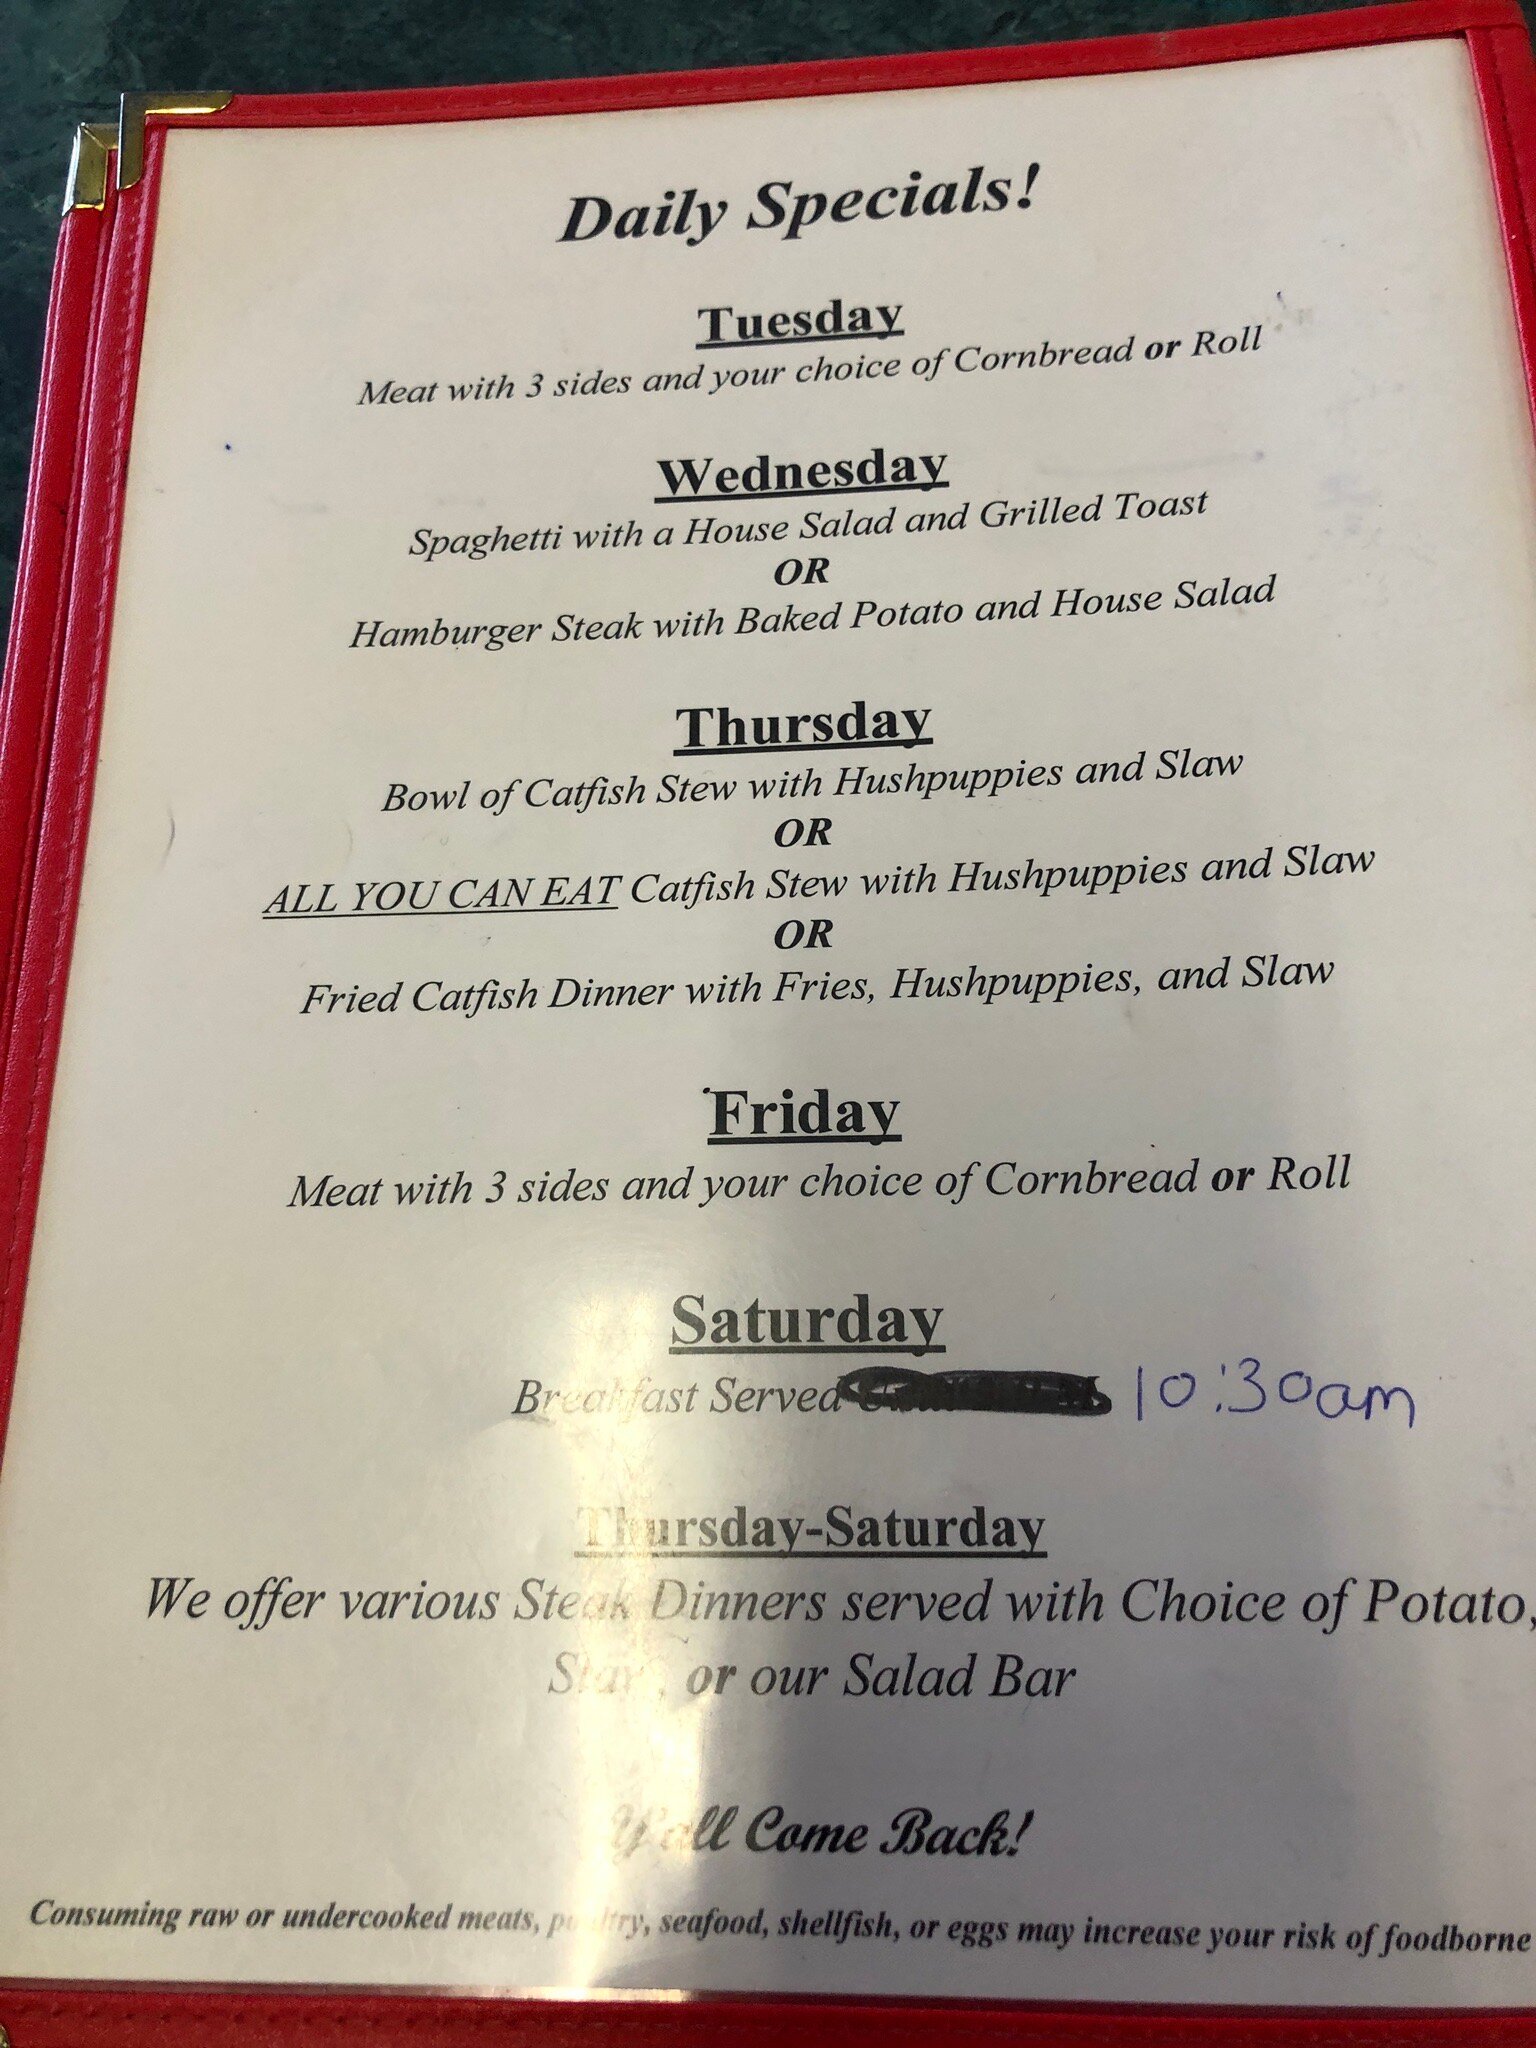 Daily Specials!
Tuesday
Meat with 3 sides and your choice of Cornbread or Roll
Wednesday
Spaghetti with a House Salad and Grilled Toast
OR
Hamburger Steak with Baked Potato and House Salad
Thursday
Bowl of Catfish Stew with Hushpuppies and Slaw
OR
ALL YOU CAN EAT Catfish Stew with Hushpuppies and Slaw
OR
Fried Catfish Dinner with Fries, Hushpuppies, and Slaw
Friday
Meat with 3 sides and your choice of Cornbread or Roll
Saturday
Breakfast Served 10:30am
Thursday-Saturday
We offer various Steak Dinners served with Choice of Potato,
or our Salad Bar
Y'all Come Back!
Consuming raw or undercooked meats, poultry, seafood, shellfish, or eggs may increase your risk of foodborne